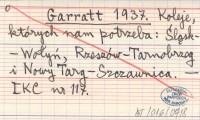 Garratt 1937. Koleje,
których nam potrzeba: Śląsk-
-Wołyń, Rzeszów-Tarnobrzeg
i Nowy Targ-Szczawnica. —
IKC nr 117.